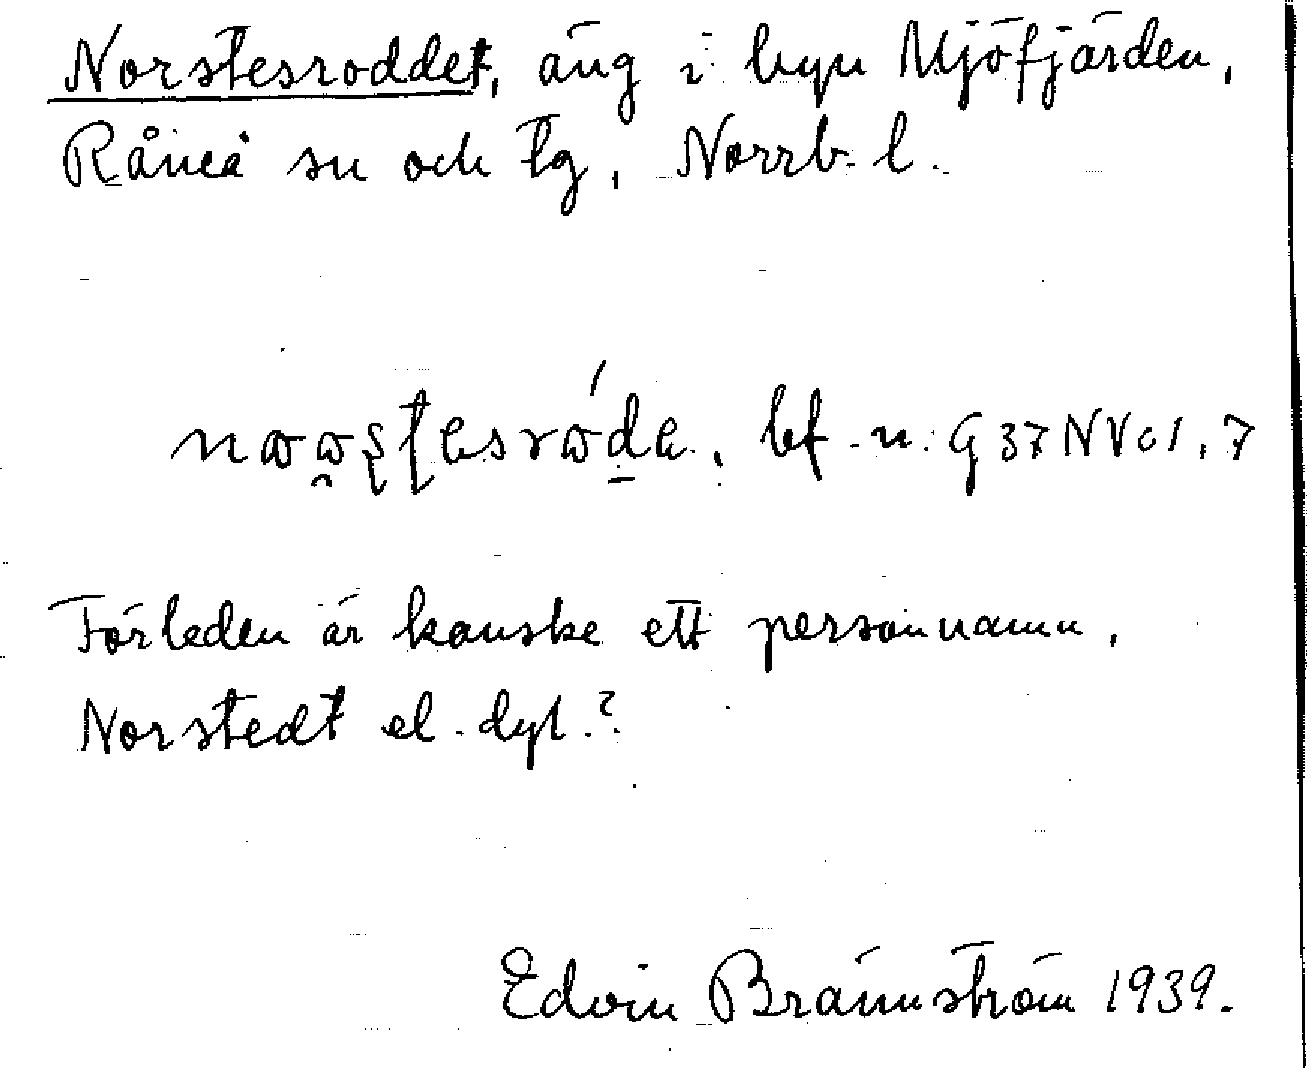 Norstesroddet, äng i byn Mjöfjärden,
Råneå sn och tg, Norrb. l.
bf. n. G37NVc1,7
Förleden är kanske ett personnamn,
Norstedt el. dyl.?
Edvin Brännström 1939.